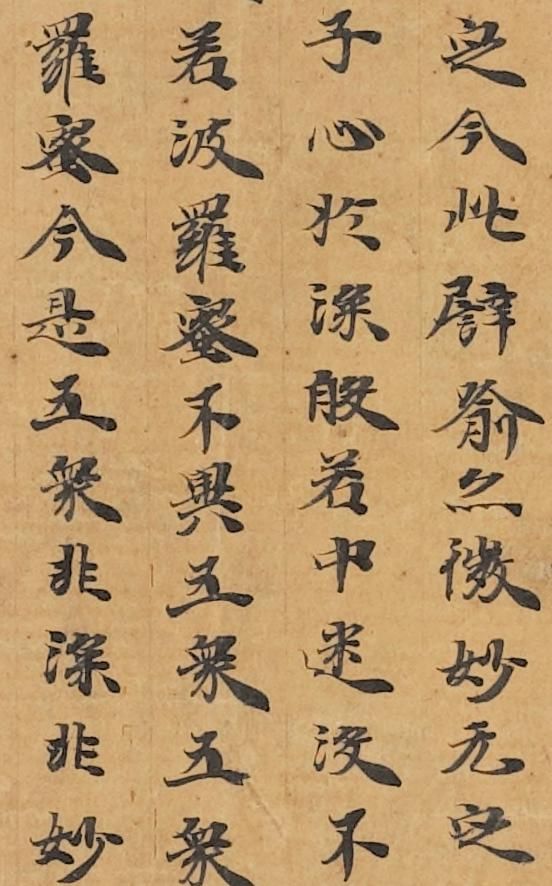 定今此譬喻亦微妙无定
子心於深般若中迷没不
若波羅蜜不異五衆五衆
羅蜜今是五衆非深非妙